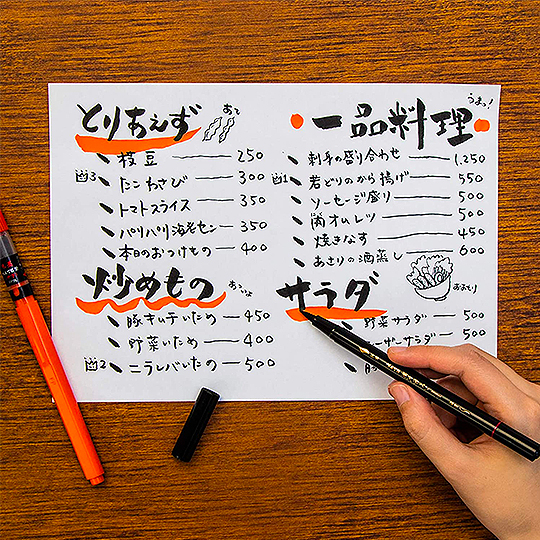 とりあえず
あて
枝豆 250
出3 たこわさび 300
トマトスライス 350
パリパリ海老セン 350
本日のおつけもの 400
炒めもの
あついよ
豚キムチいため 450
野菜いため 400
出2 ニラレバいため 500
うまっ!
一品料理
刺身の盛り合わせ 1,250
出1 若どりのから揚げ 550
ソーセージ盛り 500
肉オムレツ 500
焼きなす 450
あさりの酒蒸し 600
サラダ
おおもり
野菜サラダ 500
ーザーサラダ 500